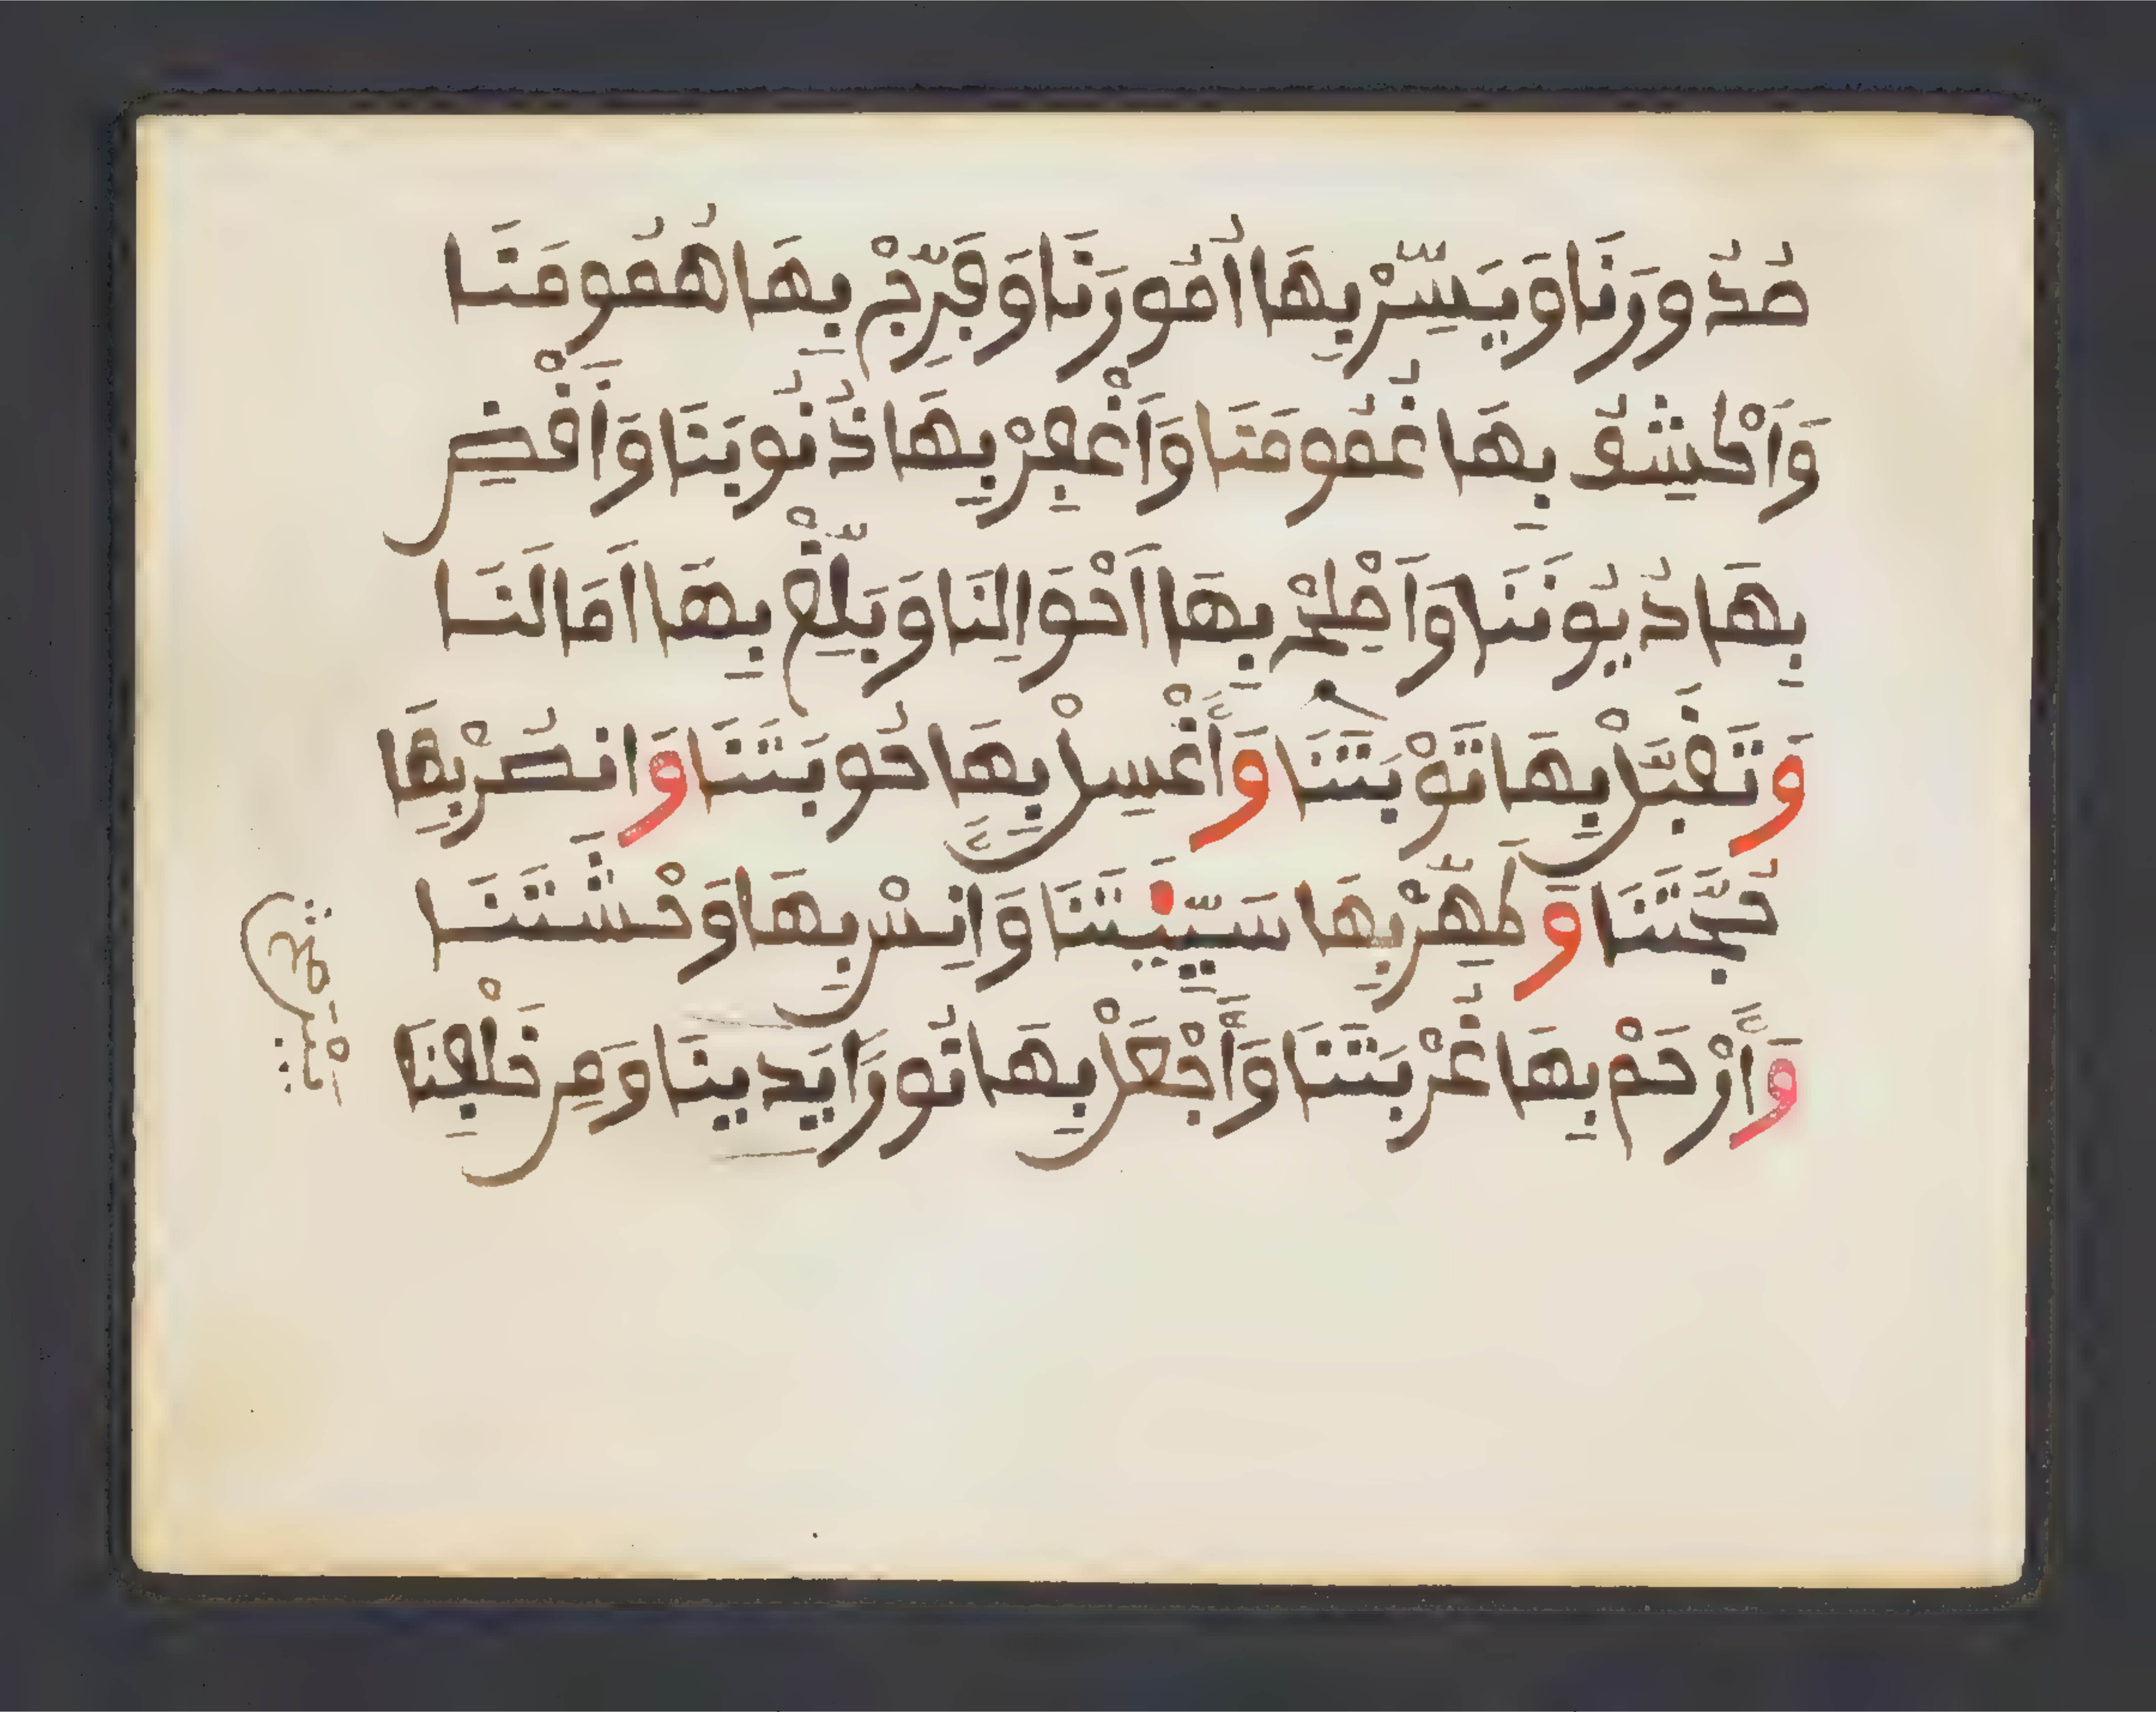 صُدُورَنَا وَيَسِّرْ بِهَا أُمُورَنَا وَفَرِّجْ بِهَا هُمُومَنَا
وَاَكْشِفْ بِهَا غُمُومَنَا وَاَغْفِرْ بِهَا ذُنُوبَنَا وَاَقْضِ
بِهَا دُيُونَنَا وَاَصْلِحْ بِهَا اَحْوَالِنَا وَبَلِّغْ بِهَا اَمَالَنَا
وَتَقَبَّلْ بِهَا تَوْبَتَنَا وَاَغْسِلْ بِهَا حُوبَتَنَا وَانصُرْ بِهَا
حُجَّتَنَا وَطَهِّرْ بِهَا سَيِّئَتَنَا وَانِسْ بِهَا وَحْشَتَنَا
وَاَرْحَمْ بِهَا غُرْبَتَنَا وَاَجْعَلْ بِهَا نُورًا يَدِينَا وَمِن خَلْفِنَا